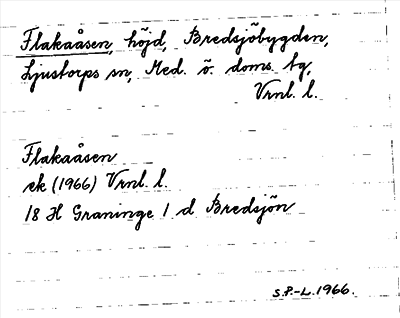 Flakaåsen, höjd, Bredsjöbygden,
Ljustorps sn, Med. ö. doms. tg,
Vrnl. l.
Flakaåsen
ek (1966) Vrnl. l.
18 H Graninge 1 d Bredsjön
S.P.-L. 1966.